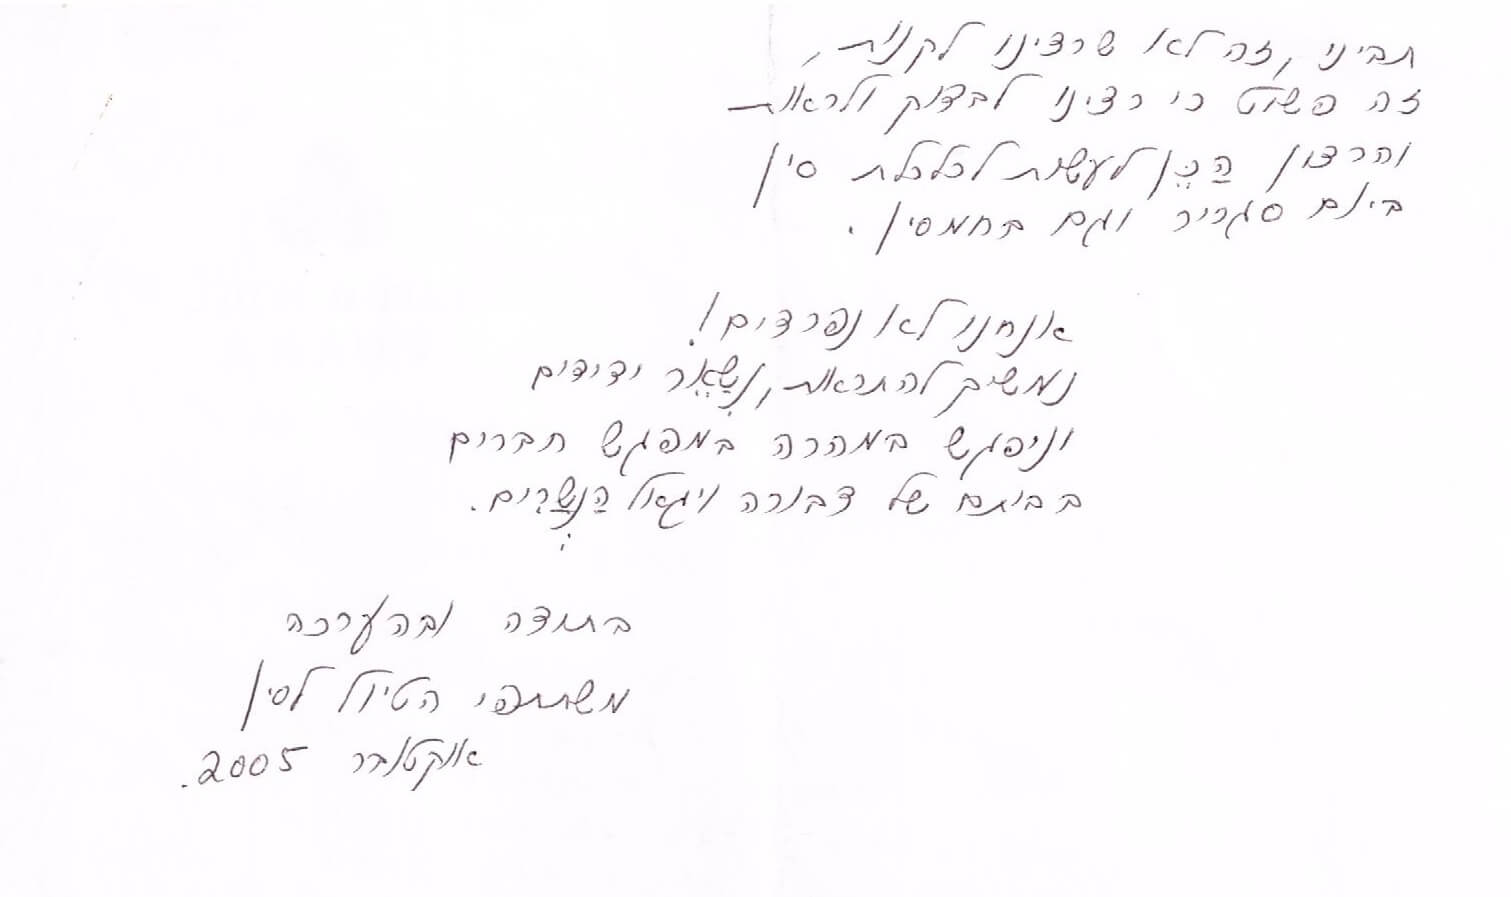 תביני, זה לא שרצינו לקנות,
זה פשוט כי רצינו לבדוק ולראות
והרצון הַכֵּן לעשות לכלכלת סין
בינם סגריר וגם בחמסין.
אנחנו לא נפרדים!
נמשיך להתראות, נִשָּׁאֵר ידידים
וניפגש במהרה במפגש חברים
בביתם של דבורה ויגאל הַנְּשָׁרִים.
בתודה ובהערכה
משתתפי הטיול לסין
אוקטובר 2005.